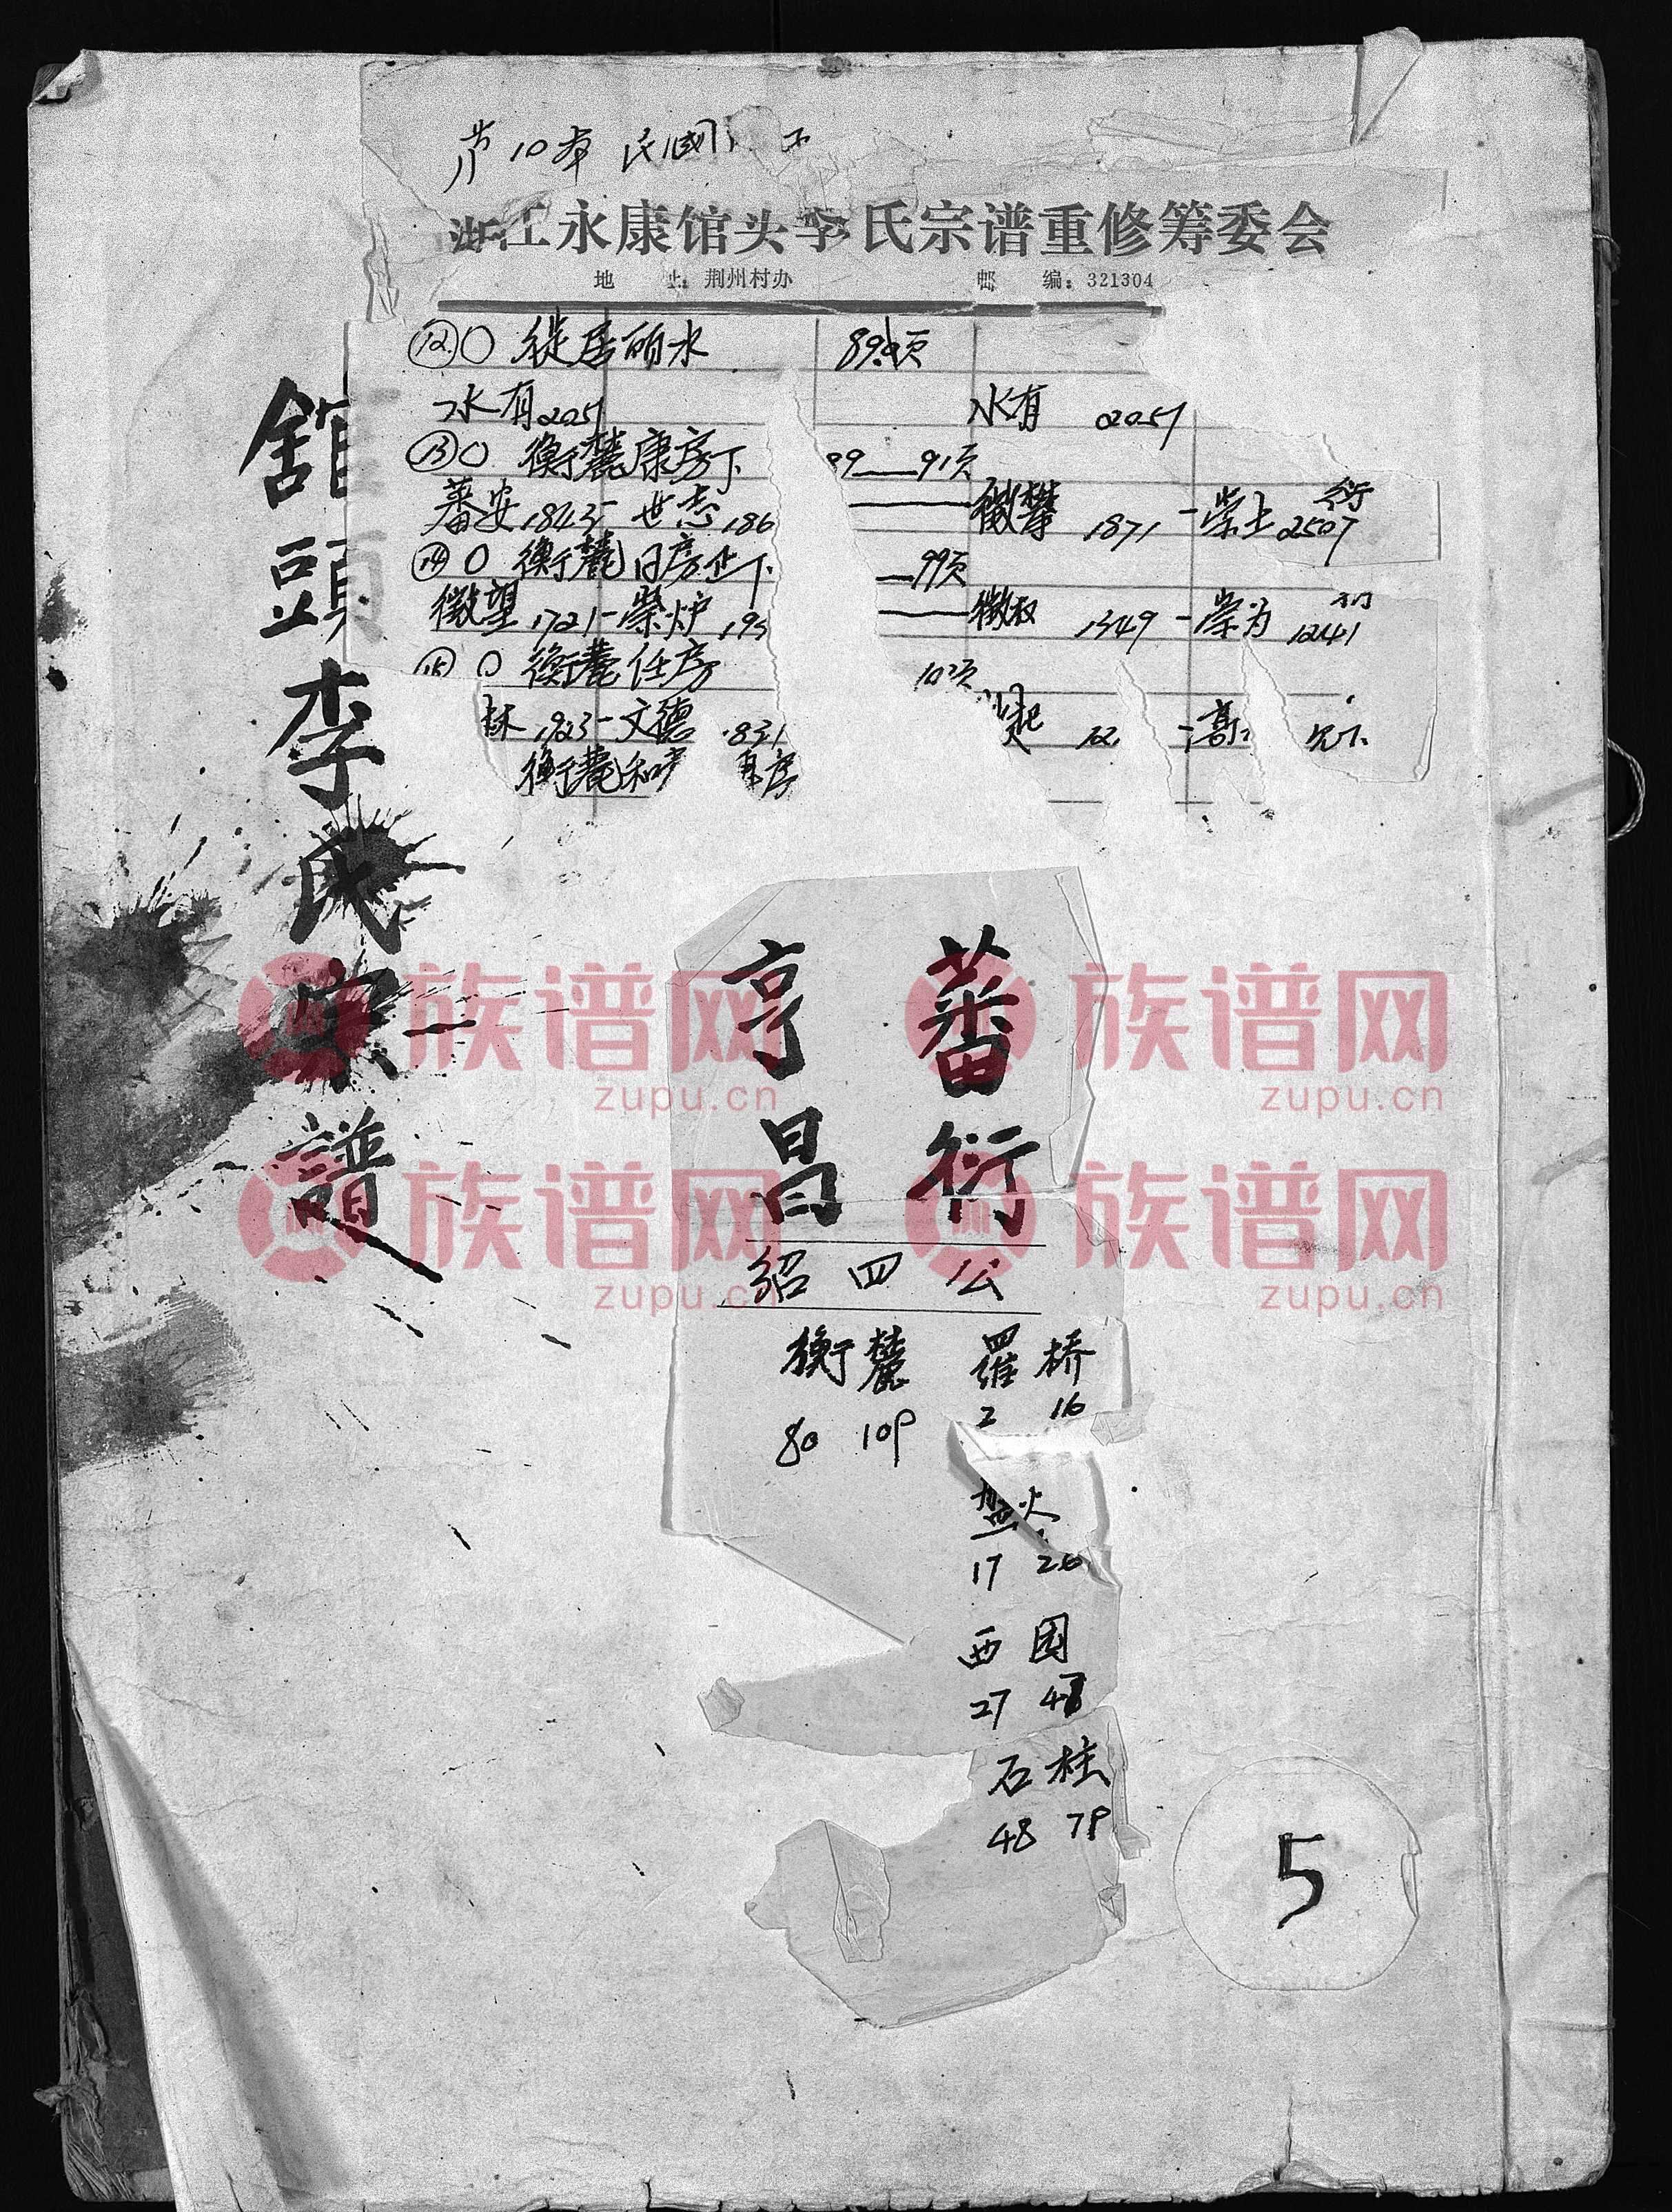 10本 民國
浙江永康馆头李氏宗谱重修筹委会
地 址：荆州村办 邮 编：321304
⑫〇 徙居丽水 89页
水有2051 水有 2051
⑬〇 衡麓康房下 89—91页
蕃安1843- 世志186 徽攀 1871-崇士 2507
⑭〇 衡麓 房 下 —99页
徽望1721-崇炉 193 徽权 1349-崇为 1241
⑮〇 衡麓任房 10 页
1923-文德 831 起 12 -高
衡麓和
舘頭李氏宗譜
蕃衍
亨昌
紹四公
衡麓 羅桥
80 109 2 16
17 26
西园
27 47
石柱
48 79
5
族谱网
zupu.cn
族谱网
zupu.cn
族谱网
zupu.cn
族谱网
zupu.cn